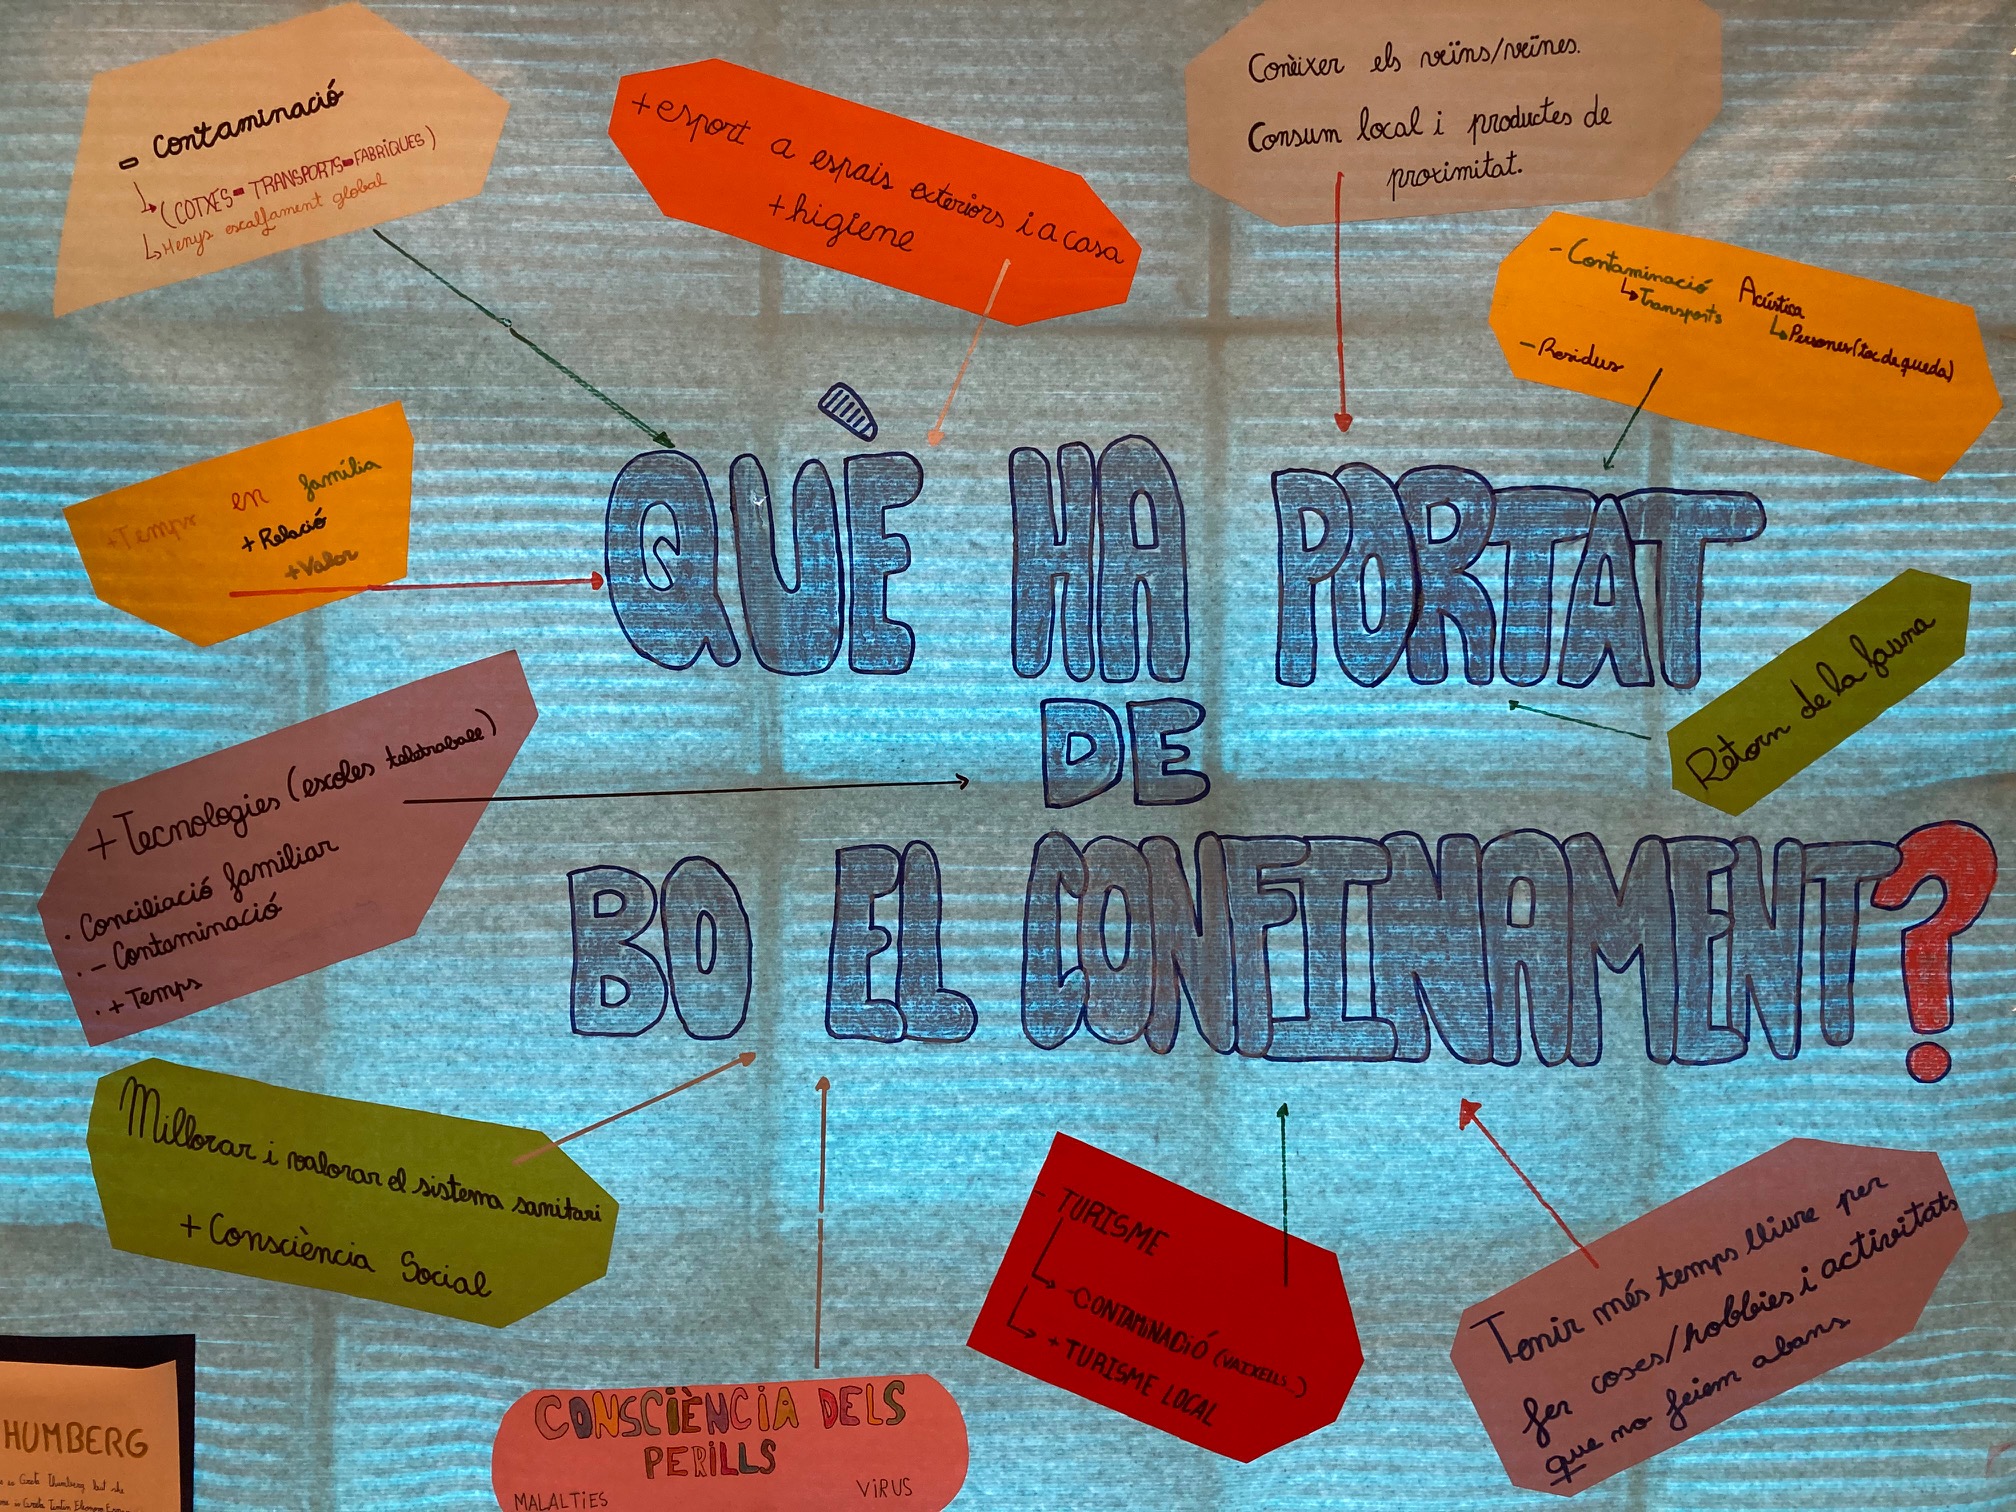 - Contaminació
(COTXES-TRANSPORTS-FABRIQUES)
Menys escalfament global
+esport a espais exteriors i a casa
+higiene
Conèixer els veïns/veïnes.
Consum local i productes de
proximitat.
- Contaminació Acústica
Transports
Persones (toc de queda)
- Residus
+Temps en família
+Relació
+Valor
QUÈ HA PORTAT
DE
BO EL CONFINAMENT?
Retorn de la fauna
+Tecnologies (escoles teletraball)
· Conciliació familiar
· - Contaminació
· + Temps
Millorar i valorar el sistema sanitari
+ Consciència Social
CONSCIÈNCIA DELS
PERILLS
MALALTIES VIRUS
- TURISME
-CONTAMINACIÓ (VAIXELLS...)
+ TURISME LOCAL
Tenir més temps lliure per
fer coses/hobbies i activitats
que no feiem abans
HUMBERG
is Greta Thunberg but she
is Greta Tintin Eleonora